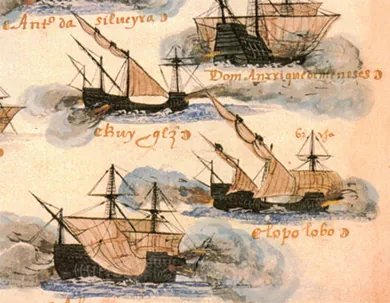 Antº da silveyra
Dom Anrriquedemeneses
Ruy glz
lopo lobo